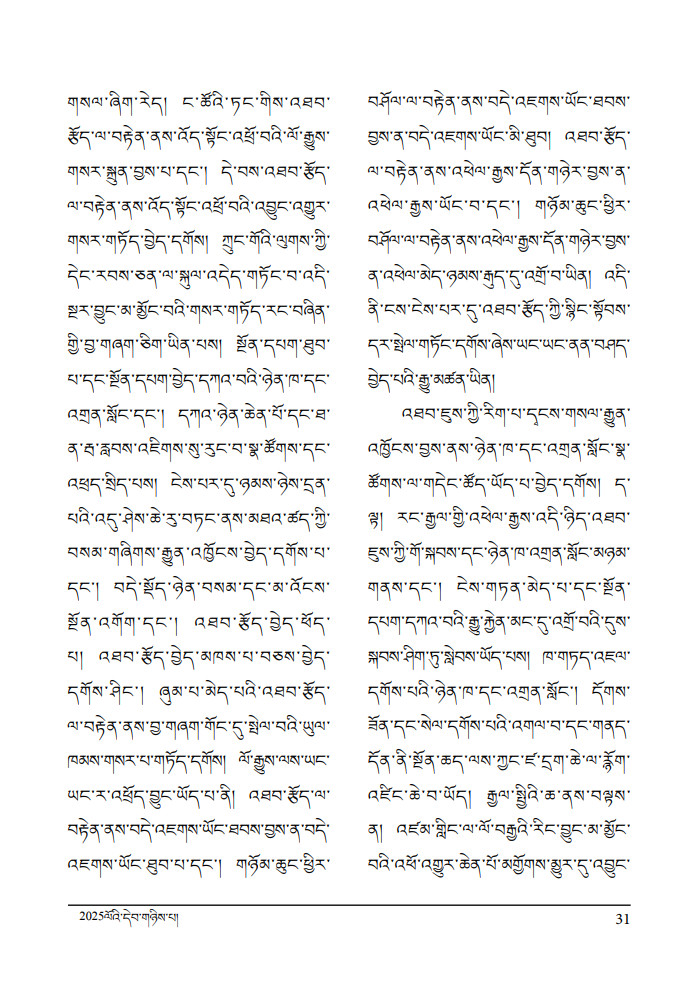 གསལ་ཞིག་རེད། ང་ཚོའི་ཏང་གིས་འཐབ་
རྩོད་ལ་བརྟེན་ནས་འོད་སྟོང་འཕྲོ་བའི་ལོ་རྒྱུས་
གསར་སྐྲུན་བྱས་པ་དང་། དེ་བས་འཐབ་རྩོད་
ལ་བརྟེན་ནས་འོད་སྟོང་འཕྲོ་བའི་འབྱུང་འགྱུར་
གསར་གཏོད་བྱེད་དགོས། ཀྲུང་གོའི་ལུགས་ཀྱི་
དེང་རབས་ཅན་ལ་སྐུལ་འདེད་གཏོང་བ་འདི་
སྔར་བྱུང་མ་མྱོང་བའི་གསར་གཏོད་རང་བཞིན་
གྱི་བྱ་གཞག་ཅིག་ཡིན་པས། སྔོན་དཔག་ཐུབ་
པ་དང་སྔོན་དཔག་བྱེད་དཀའ་བའི་ཉེན་ཁ་དང་
འགྲན་སློང་དང་། དཀའ་ཉེན་ཆེན་པོ་དང་ཐ་
ན་རྦ་རླབས་འཇིགས་སུ་རུང་བ་སྣ་ཚོགས་དང་
འཕྲད་སྲིད་པས། ངེས་པར་དུ་ཉམས་ཉེས་དྲན་
པའི་འདུ་ཤེས་ཆེ་རུ་བཏང་ནས་མཐའ་ཚད་ཀྱི་
བསམ་གཞིགས་རྒྱུན་འཁྱོངས་བྱེད་དགོས་པ་
དང་། བདེ་སྡོད་ཉེན་བསམ་དང་མ་འོངས་
སྔོན་འགོག་དང་། འཐབ་རྩོད་བྱེད་ཕོད་
པ། འཐབ་རྩོད་བྱེད་མཁས་པ་བཅས་བྱེད་
དགོས་ཤིང་། ཞུམ་པ་མེད་པའི་འཐབ་རྩོད་
ལ་བརྟེན་ནས་བྱ་གཞག་གོང་དུ་སྤེལ་བའི་ཡུལ་
ཁམས་གསར་པ་གཏོད་དགོས། ལོ་རྒྱུས་ལས་ཡང་
ཡང་ར་འཕྲོད་བྱུང་ཡོད་པ་ནི། འཐབ་རྩོད་ལ་
བརྟེན་ནས་བདེ་འཇགས་ཡོང་ཐབས་བྱས་ན་བདེ་
འཇགས་ཡོང་ཐུབ་པ་དང་། གཉོམ་ཆུང་ཕྱིར་
བཤོལ་ལ་བརྟེན་ནས་བདེ་འཇགས་ཡོང་ཐབས་
བྱས་ན་བདེ་འཇགས་ཡོང་མི་ཐུབ། འཐབ་རྩོད་
ལ་བརྟེན་ནས་འཕེལ་རྒྱས་དོན་གཉེར་བྱས་ན་
འཕེལ་རྒྱས་ཡོང་བ་དང་། གཉོམ་ཆུང་ཕྱིར་
བཤོལ་ལ་བརྟེན་ནས་འཕེལ་རྒྱས་དོན་གཉེར་བྱས་
ན་འཕེལ་མེད་ཉམས་རྒུད་དུ་འགྲོ་བ་ཡིན། འདི་
ནི་ངས་ངེས་པར་དུ་འཐབ་རྩོད་ཀྱི་སྙིང་སྟོབས་
དར་སྤེལ་གཏོང་དགོས་ཞེས་ཡང་ཡང་ནན་བཤད་
བྱེད་པའི་རྒྱུ་མཚན་ཡིན།
འཐབ་ཇུས་ཀྱི་རིག་པ་དྭངས་གསལ་རྒྱུན་
འཁྱོངས་བྱས་ནས་ཉེན་ཁ་དང་འགྲན་སློང་སྣ་
ཚོགས་ལ་གདེང་ཚོད་ཡོད་པ་བྱེད་དགོས། ད་
ལྟ། རང་རྒྱལ་གྱི་འཕེལ་རྒྱས་འདི་ཉིད་འཐབ་
ཇུས་ཀྱི་གོ་སྐབས་དང་ཉེན་ཁ་འགྲན་སློང་མཉམ་
གནས་དང་། ངེས་གཏན་མེད་པ་དང་སྔོན་
དཔག་དཀའ་བའི་རྒྱུ་རྐྱེན་མང་དུ་འགྲོ་བའི་དུས་
སྐབས་ཤིག་ཏུ་སླེབས་ཡོད་པས། ཁ་གཏད་འཇལ་
དགོས་པའི་ཉེན་ཁ་དང་འགྲན་སློང་། དོགས་
ཟོན་དང་སེལ་དགོས་པའི་འགལ་བ་དང་གནད་
དོན་ནི་སྔོན་ཆད་ལས་ཀྱང་ཛ་དྲག་ཆེ་ལ་རྙོག་
འཛིང་ཆེ་བ་ཡོད། རྒྱལ་སྤྱིའི་ཆ་ནས་བལྟས་
ན། འཛམ་གླིང་ལ་ལོ་བརྒྱའི་རིང་བྱུང་མ་མྱོང་
བའི་འཕོ་འགྱུར་ཆེན་པོ་མགྱོགས་མྱུར་དུ་འབྱུང་
2025ལོའི་དེབ་གཉིས་པ། 31